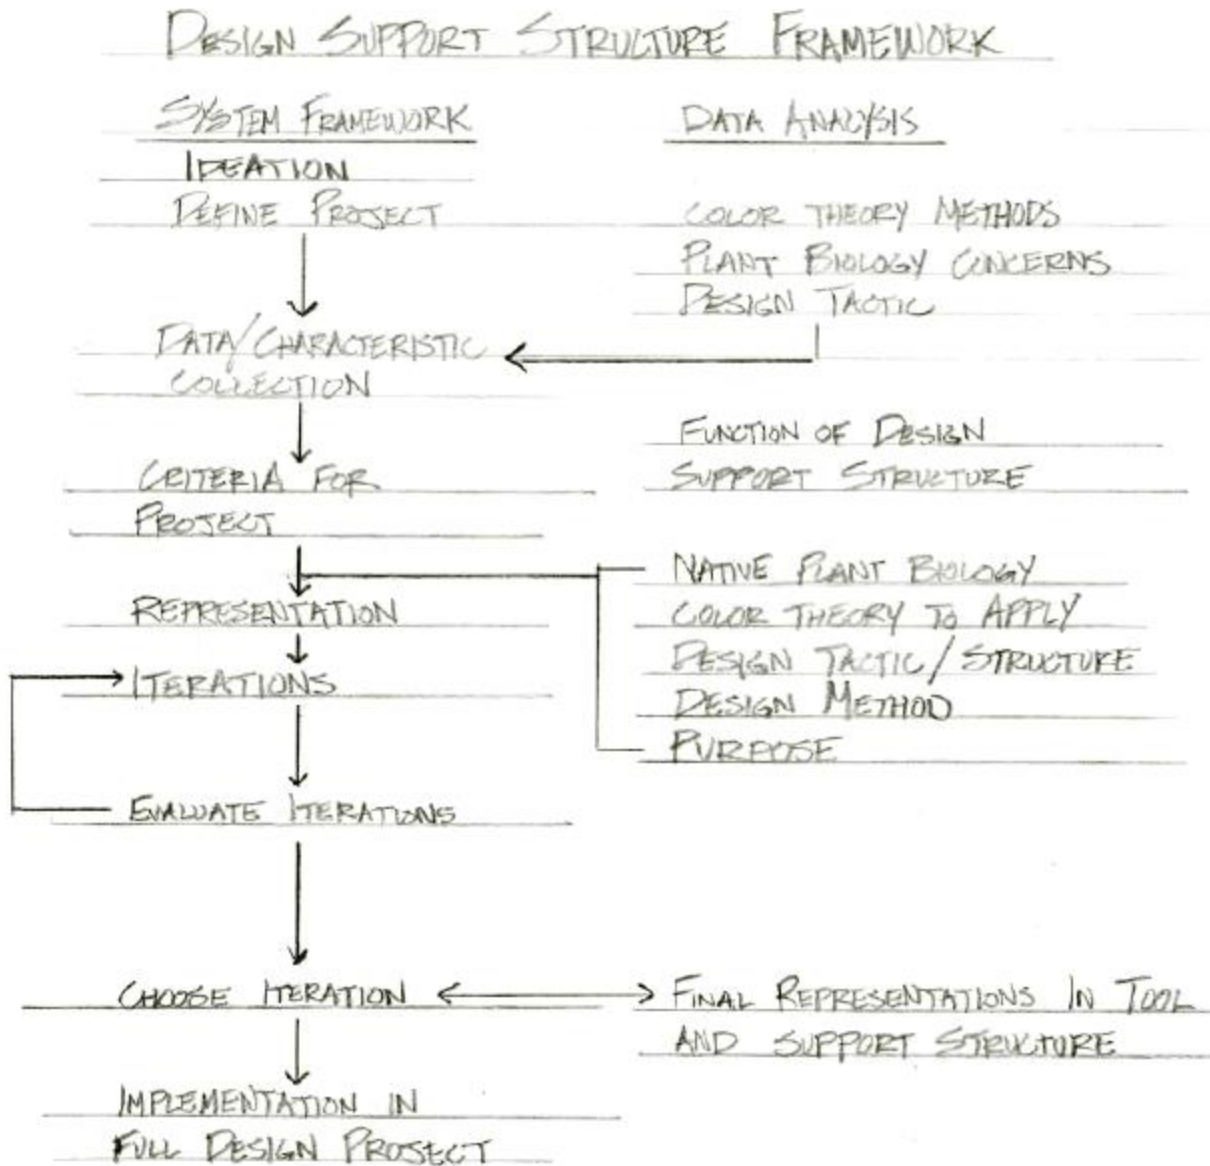 DESIGN SUPPORT STRUCTURE FRAMEWORK
SYSTEM FRAMEWORK
IDEATION
DEFINE PROJECT
DATA/CHARACTERISTIC
COLLECTION
CRITERIA FOR
PROJECT
REPRESENTATION
ITERATIONS
EVALUATE ITERATIONS
CHOOSE ITERATION
IMPLEMENTATION IN
FULL DESIGN PROJECT
DATA ANALYSIS
COLOR THEORY METHODS
PLANT BIOLOGY CONCERNS
DESIGN TACTIC
FUNCTION OF DESIGN
SUPPORT STRUCTURE
NATIVE PLANT BIOLOGY
COLOR THEORY TO APPLY
DESIGN TACTIC/STRUCTURE
DESIGN METHOD
PURPOSE
FINAL REPRESENTATIONS IN TOOL
AND SUPPORT STRUCTURE